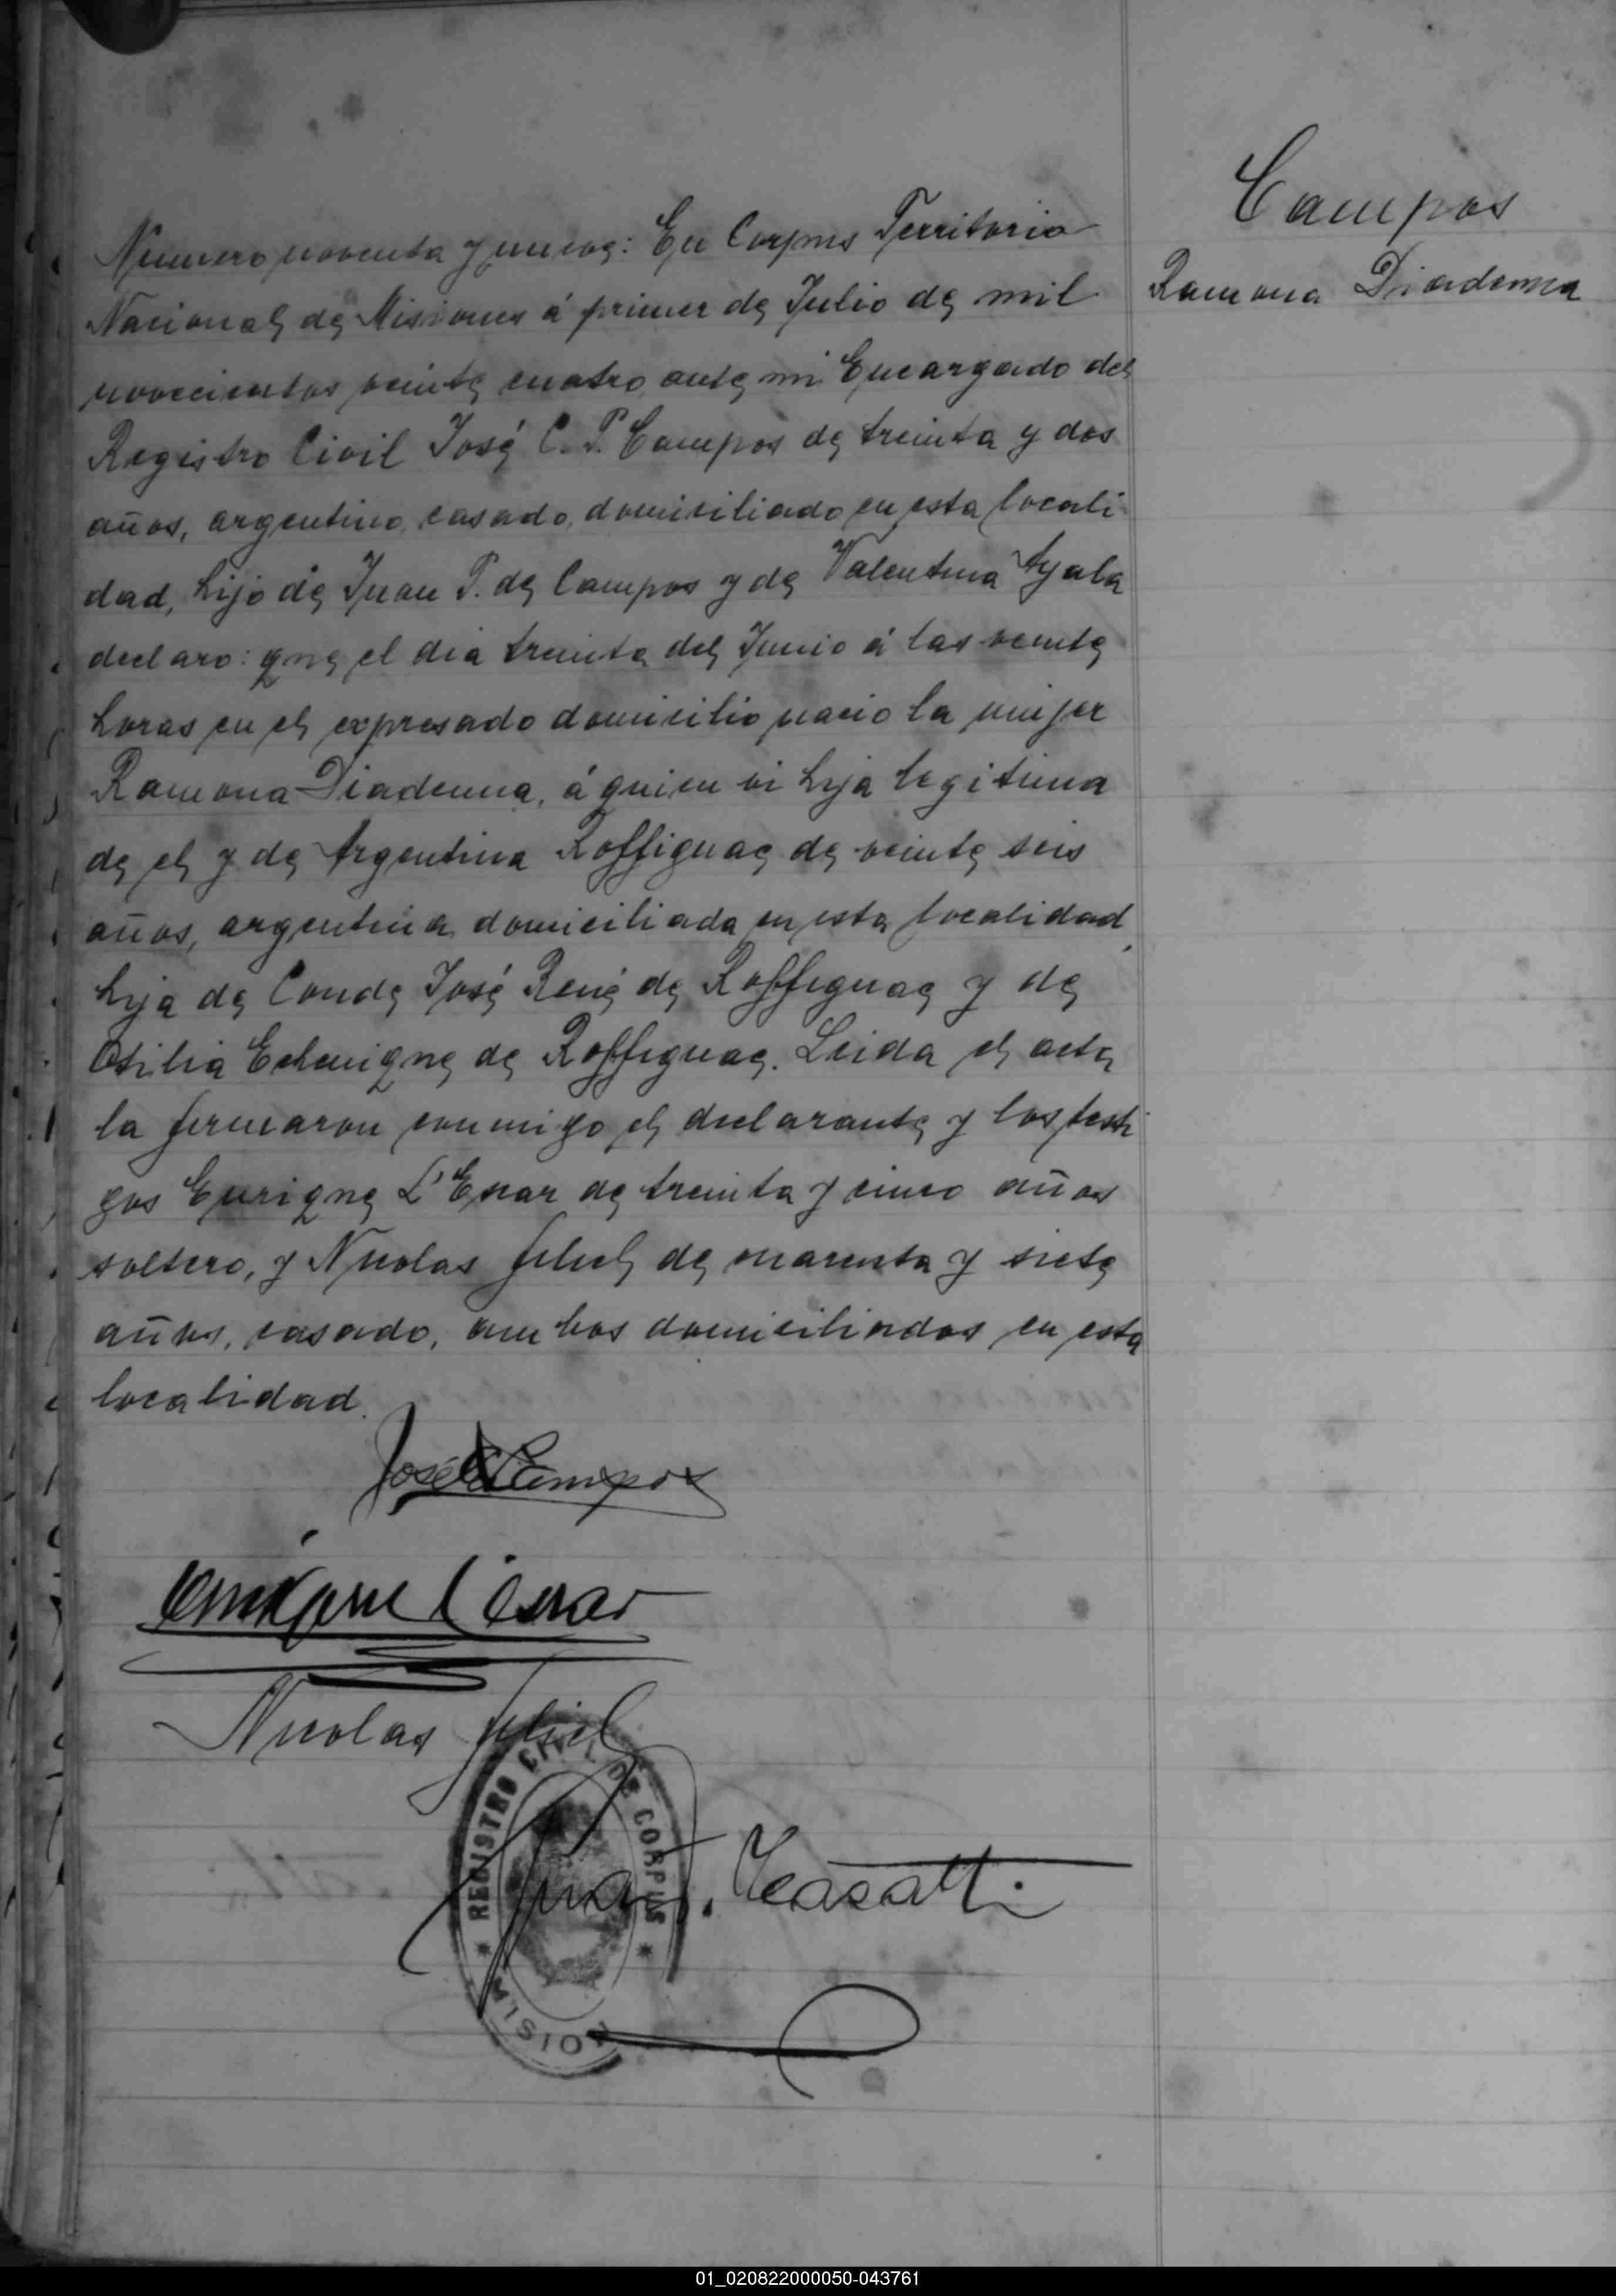 Campos
Ramona Diadema
Numero noventa y nueve: En Corpus Territorio
Nacional de Misiones á primer de Julio de mil
novecientos veinte cuatro, ante mi Encargado del
Registro Civil José C. P. Campos de treinta y dos
años, argentino, casado, domiciliado en esta locali-
dad, hijo de Juan P. de Campos y de Valentina Ayala
declaro: que el dia treinta del Junio á las veinte
horas en el expresado domicilio nacio la mujer
Ramona Diadema, á quien vi hija legitima
de el y de Argentina Roffignac de veinte seis
años, argentina domiciliada en esta localidad,
hija de Conde José René de Roffignac y de
Otilia Echenique de Roffignac. Leida el acta
la firmaron conmigo el declarante y los testi
gos Enrique de treinta y cinco años
soltero, y Nicolas de cuarenta y siete
años, casado, ambos domiciliados en esta
localidad.
José C P Campos
Enrique
Nicolas
REGISTRO CIVIL DE CORPUS
MISION
Casatti
01_020822000050-043761